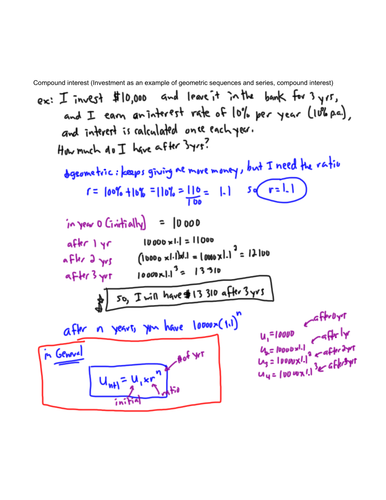 Compound interest (Investment as an example of geometric sequences and series, compound interest)
ex: I invest $10,000 and leave it in the bank for 3 yrs,
and I earn an interest rate of 10% per year (10% pa),
and interest is calculated once each year.
How much do I have after 3yrs?
geometric: keeps giving me more money, but I need the ratio
r = 100% + 10% = 110% = 110/100 = 1.1 so r = 1.1
in year 0 (initially) = 10000
after 1 yr 10000x1.1 = 11000
after 2 yrs (10000 x1.1)x1.1 = 10000x1.1² = 12100
after 3 yrs 10000x1.1³ = 13310
so, I will have $13 310 after 3 yrs
after n years, you have 10000x(1.1)ⁿ
in General
# of yrs
Uₙ₊₁ = U₁xrⁿ
initial ratio
U₁ = 10000 after 0 yrs
U₂ = 10000x1.1 after 1yr
U₃ = 10000x1.1² after 2yrs
U₄ = 10000x1.1³ after 3yrs